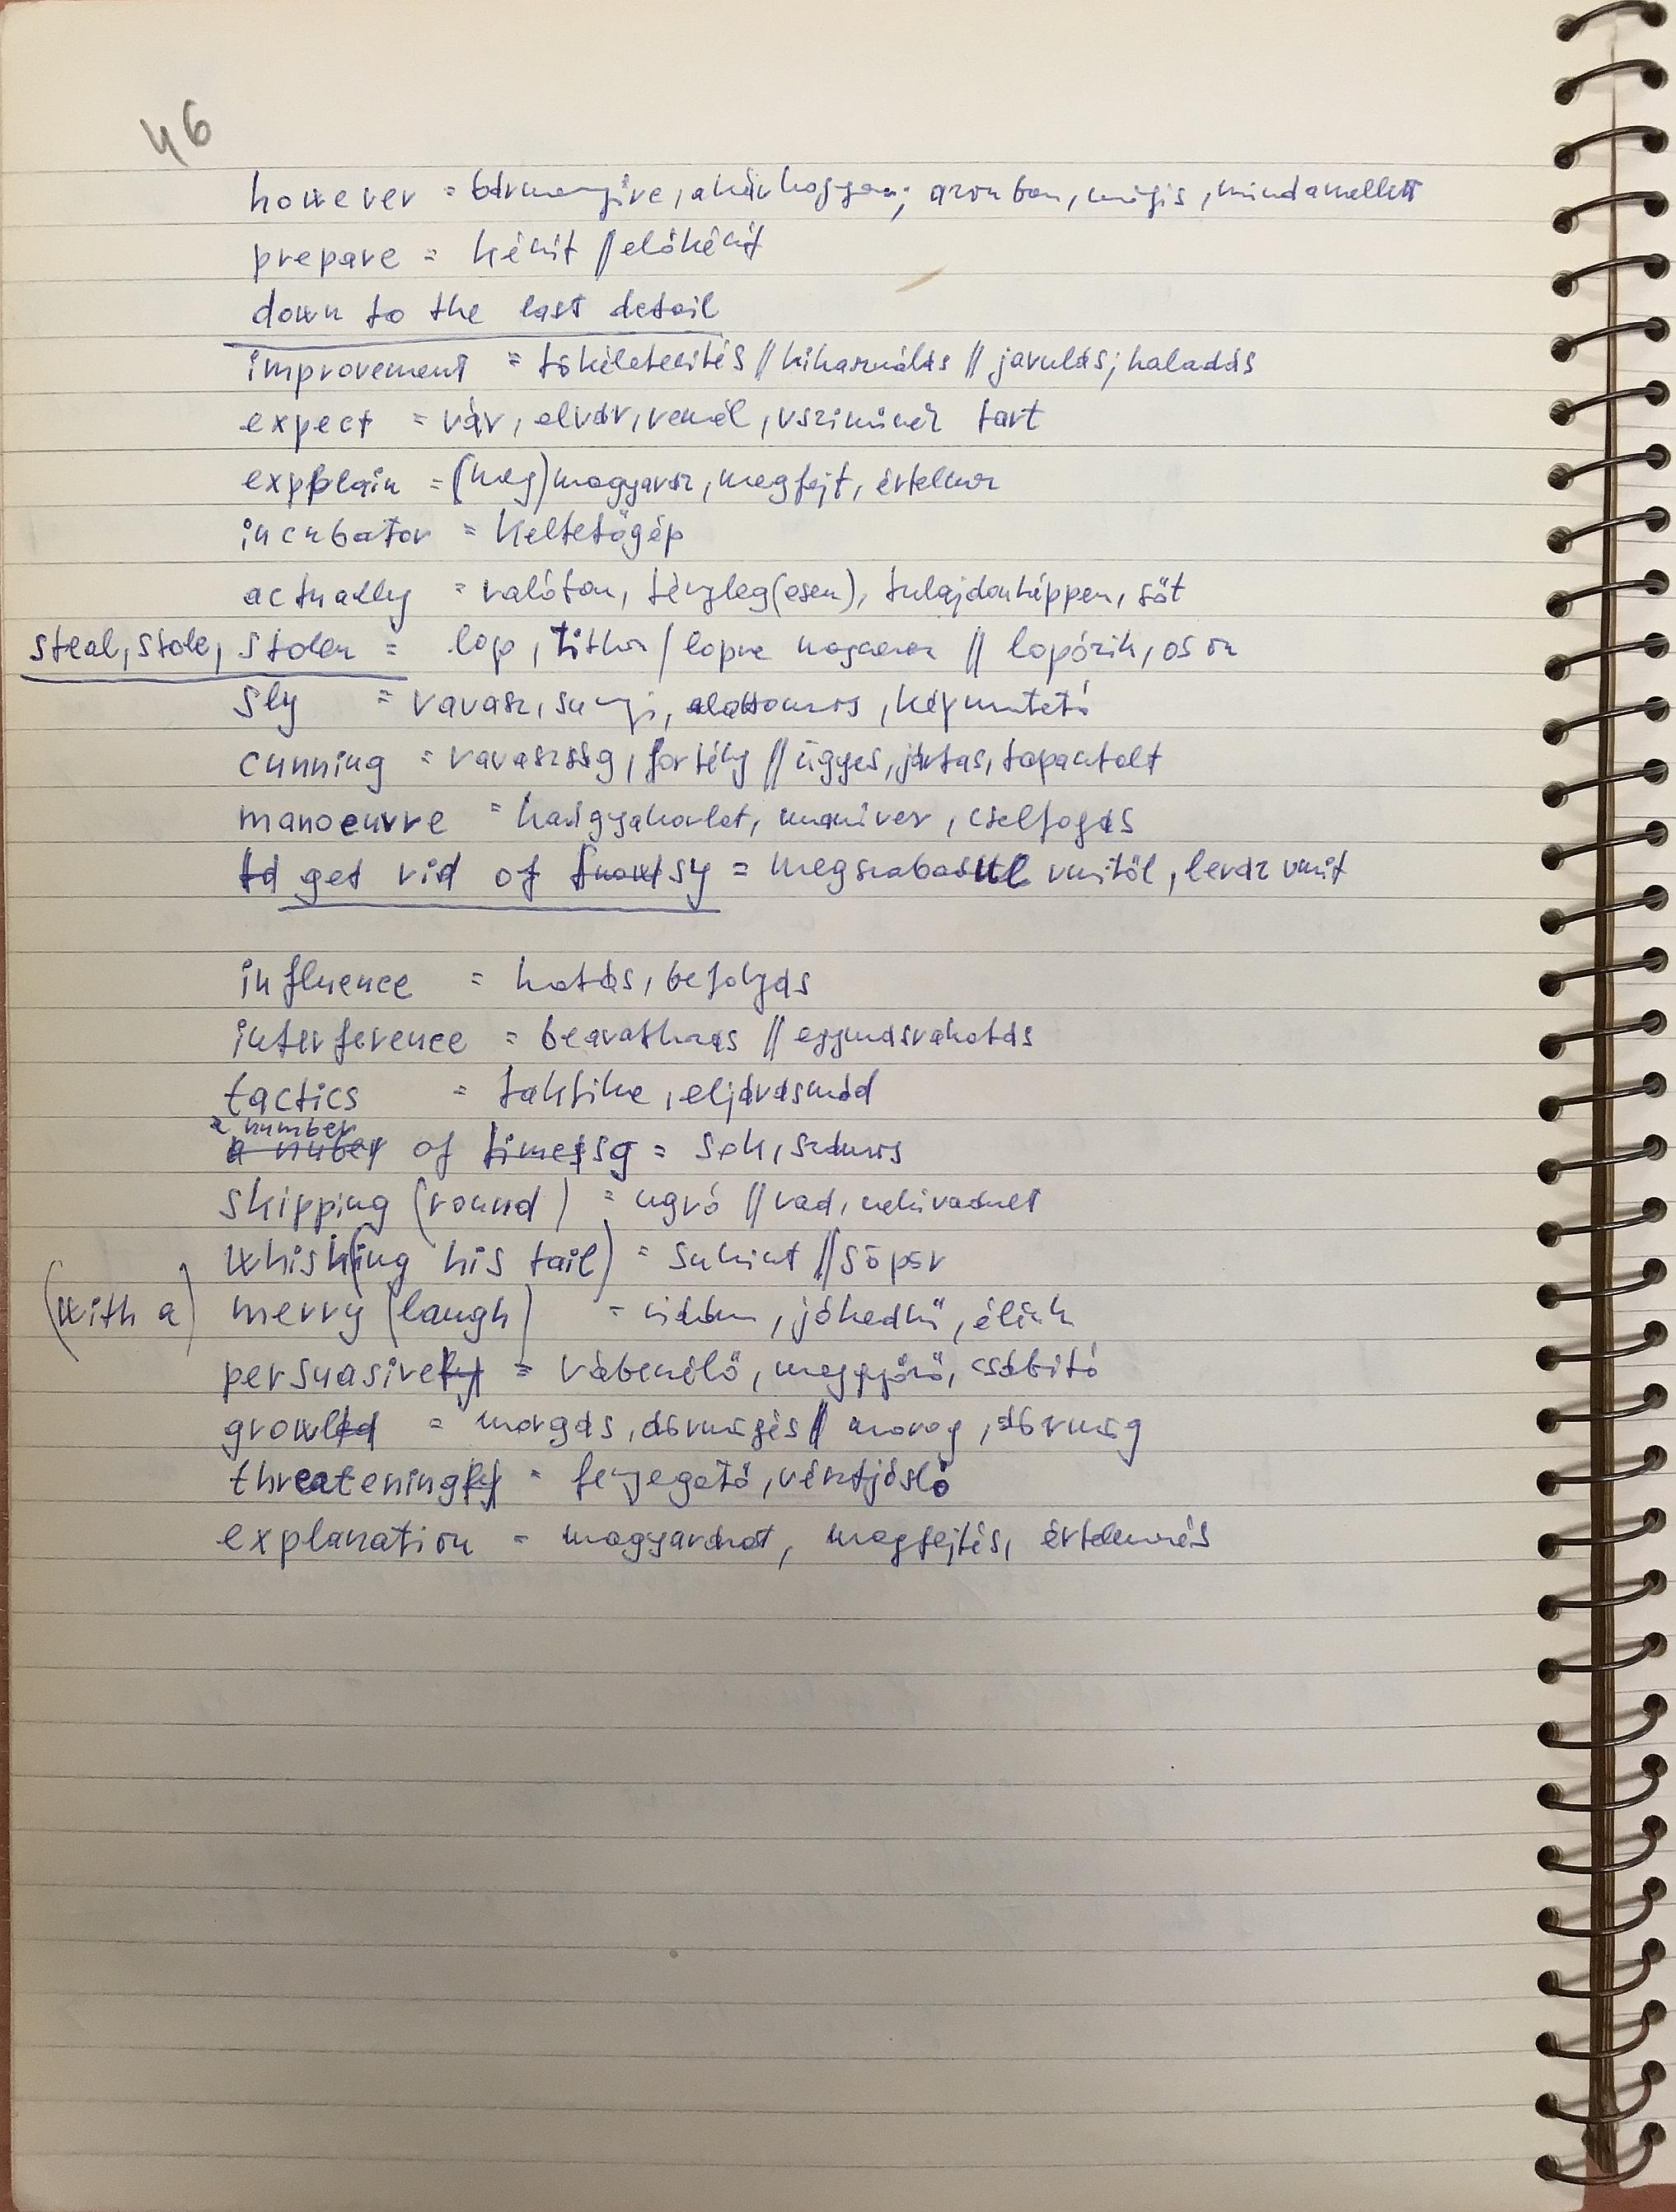 46
however = bármennyire, akárhogyan; azonban, mégis, mindamellett
prepare = készít // előkészít
down to the last detail
improvement = tökéletesítés // kihasználás // javulás; haladás
expect = vár, elvár, remél, vsziminek tart
explain = (meg)magyaráz, megfejt, értelmez
incubator = keltetőgép
actually = valóban, tényleg(esen), tulajdonképpen, sőt
steal, stole, stolen = lop, titkon / lopva megszerez // lopózik, oson
sly = ravasz, sunyi, alattomos, képmutató
cunning = ravaszság, fortély // ügyes, jártas, tapasztalt
manoeuvre = hadgyakorlat, manőver, cselfogás
to get rid of sy = megszabadul vmitől, leráz vmit
influence = hatás, befolyás
interference = beavatkozás // egymásrahatás
tactics = taktika, eljárásmód
a number
of sg = sok, számos
skipping (round) = ugró // vad, nekivadult
whisk(ing his tail) = suhint // söpör
(with a) merry (laugh) = vidám, jókedvű, élénk
persuasive = rábeszélő, meggyőző, csábító
growl = morgás, dörmögés // morog, dörmög
threatening = fenyegető, vészjósló
explanation = magyarázat, megfejtés, értelmezés